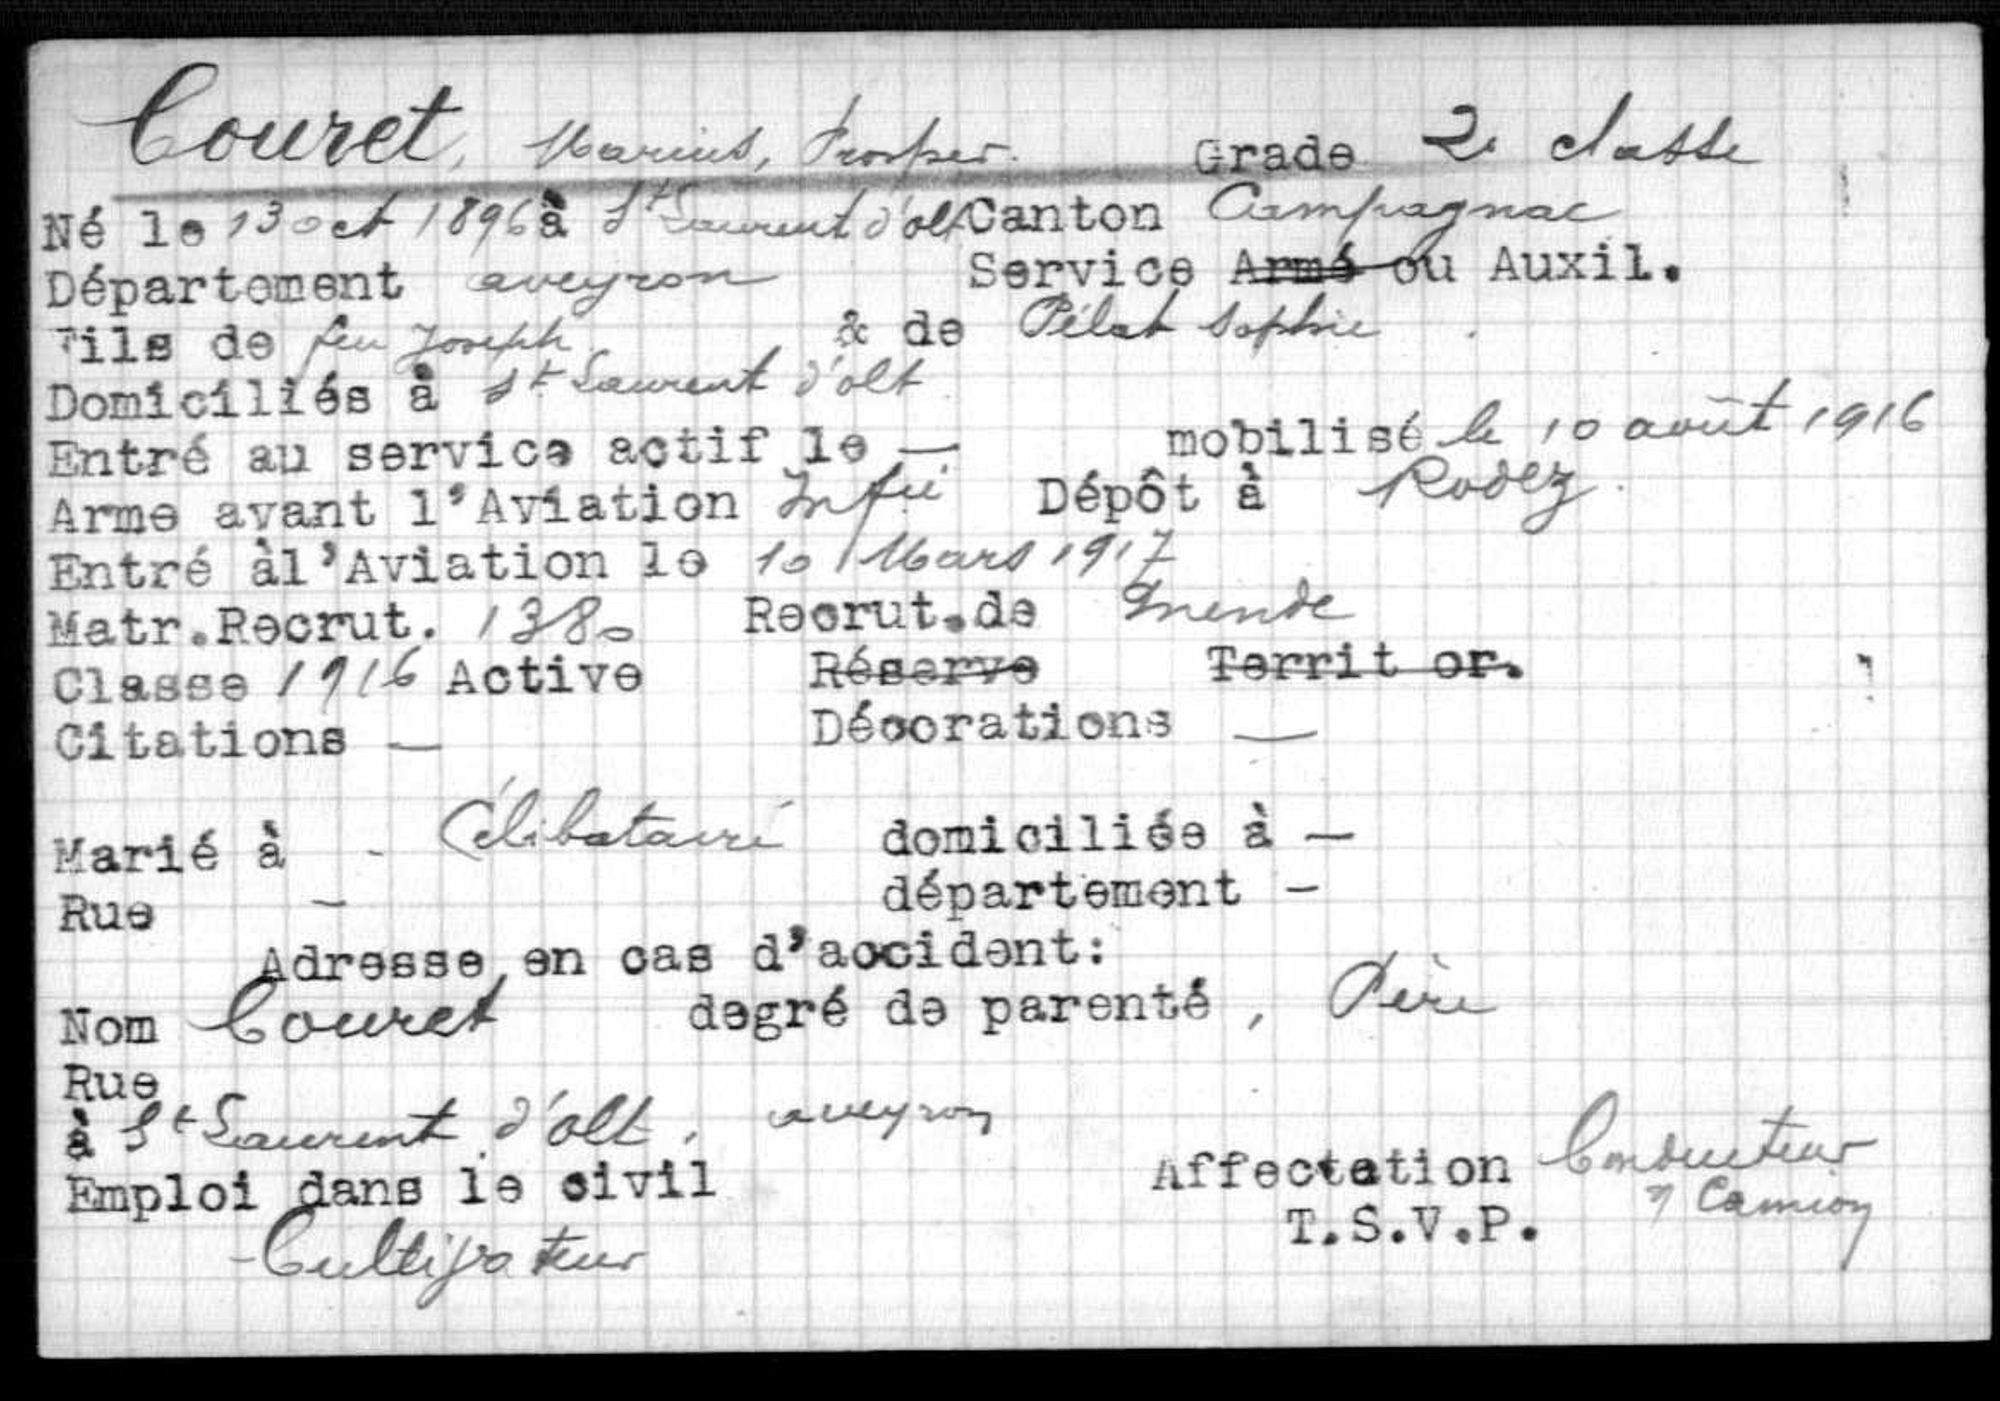 Couret, Marius, Prosper. Grade 2e classe
Né le 13 oct 1896 à St Laurent d'olt Canton Campagnac
Département aveyron Service Armé ou Auxil.
Fils de feu Joseph & de Pélat Sophie
Domiciliés à St Laurent d'olt
Entré au service actif le — mobilisé le 10 août 1916
Arme avant l'Aviation Infie Dépôt à Rodez.
Entré àl'Aviation le 10 Mars 1917
Matr.Recrut. 1380 Recrut.de Mende
Classe 1916 Active Réserve Territ or.
Citations — Décorations —
Marié à - Célibataire domiciliée à —
Rue — département —
Adresse en cas d'accident:
Nom Couret degré de parenté, Père
Rue
à St Laurent d'olt, aveyron
Emploi dans le civil Affectation Conducteur
Camion
- Cultivateur T.S.V.P.